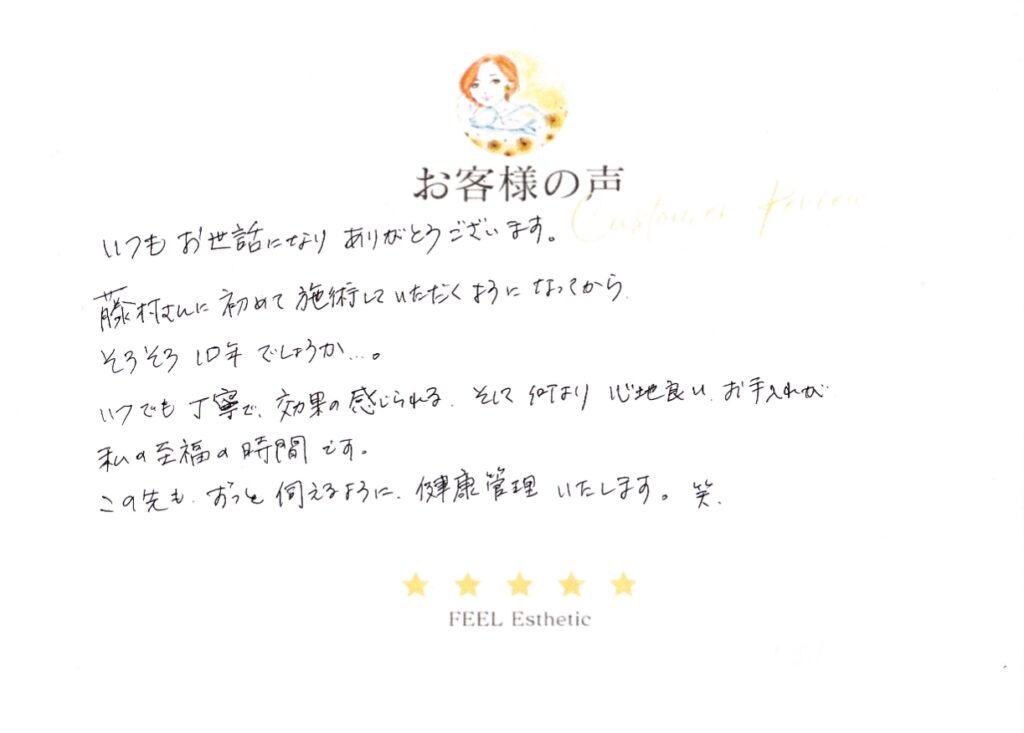 お客様の声
Customer Review
いつもお世話になりありがとうございます。
藤村さんに初めて施術していただくようになってから、
そろそろ10年でしょうか…。
いつでも丁寧で、効果の感じられる、そして何より心地良い、お手入れが
私の至福の時間です。
この先も、ずっと伺えるように、健康管理いたします。笑、
FEEL Esthetic